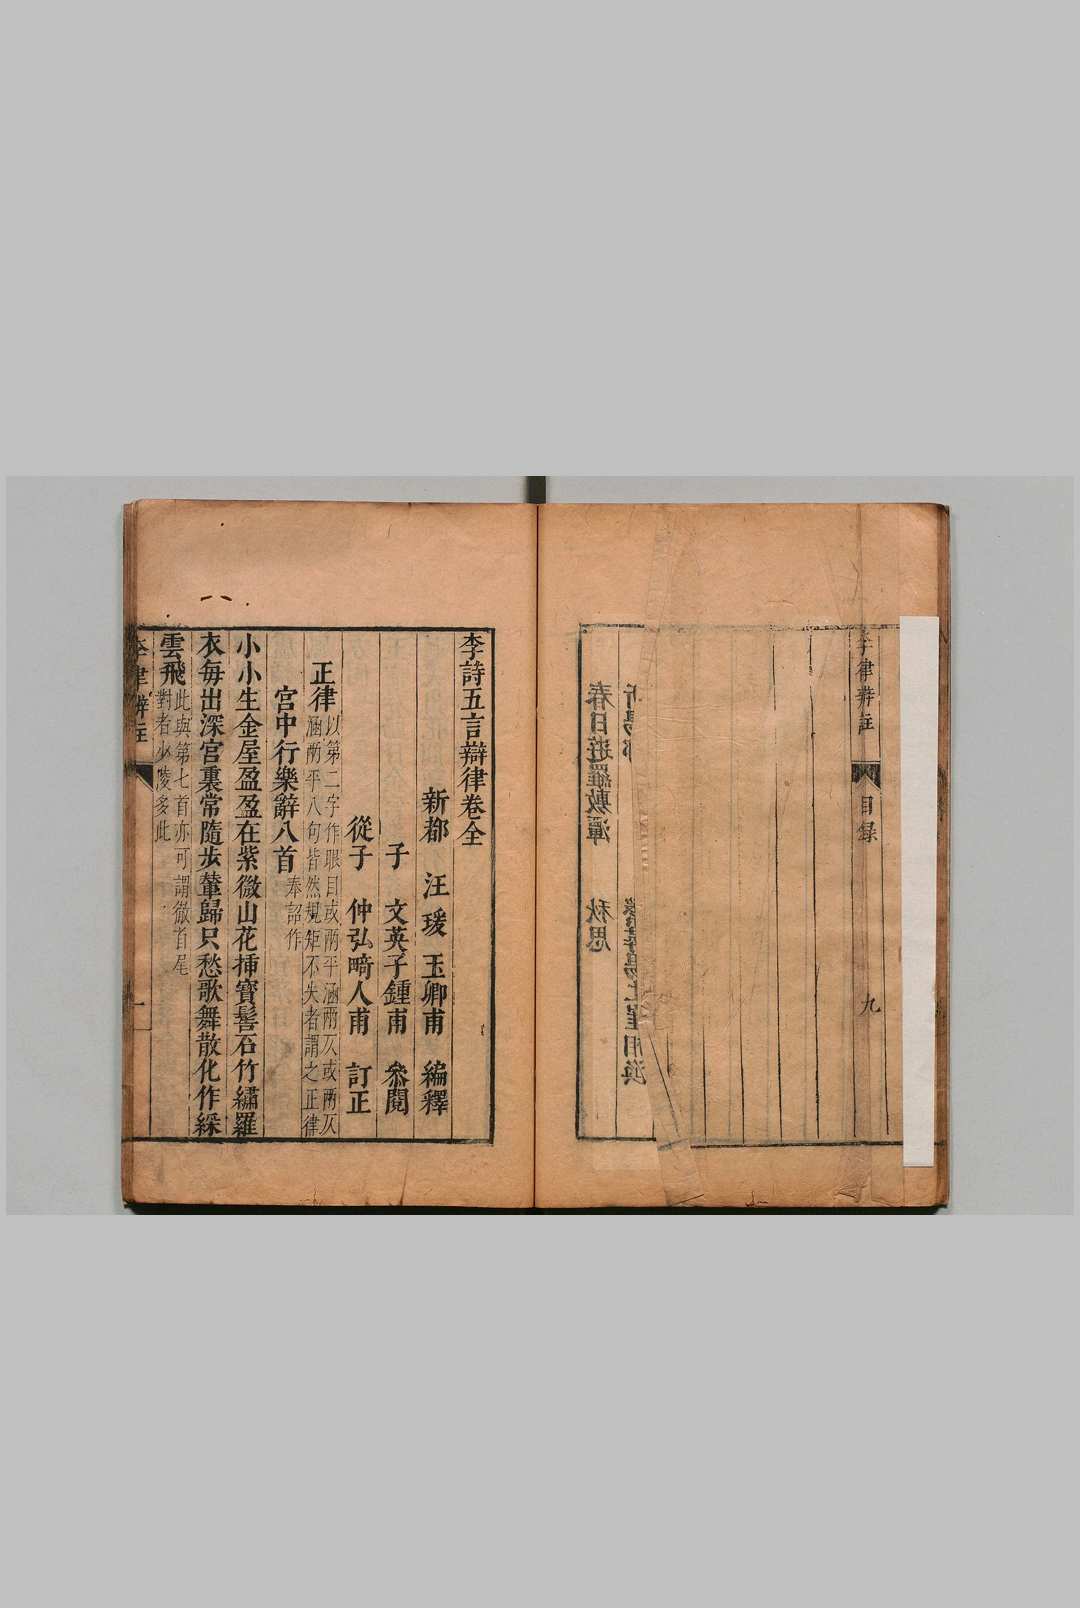 李律辨註
目録
九
春日遊羅敷潭　秋思
李詩五言辯律卷全
新都　汪瑗　玉卿甫　編釋
子　文英子鍾甫　叅閱
從子　仲弘畸人甫　訂正
正律
以第二字作眼目或兩平涵兩仄或兩仄
涵兩平八句皆然規矩不失者謂之正律
宮中行樂辭八首
奉詔作
小小生金屋盈盈在紫微山花揷寶髻石竹繡羅
衣每出深宮裏常隨步輦歸只愁歌舞散化作綵
雲飛
此與第七首亦可謂徹首尾
對者少陵多此
李律辨註
一